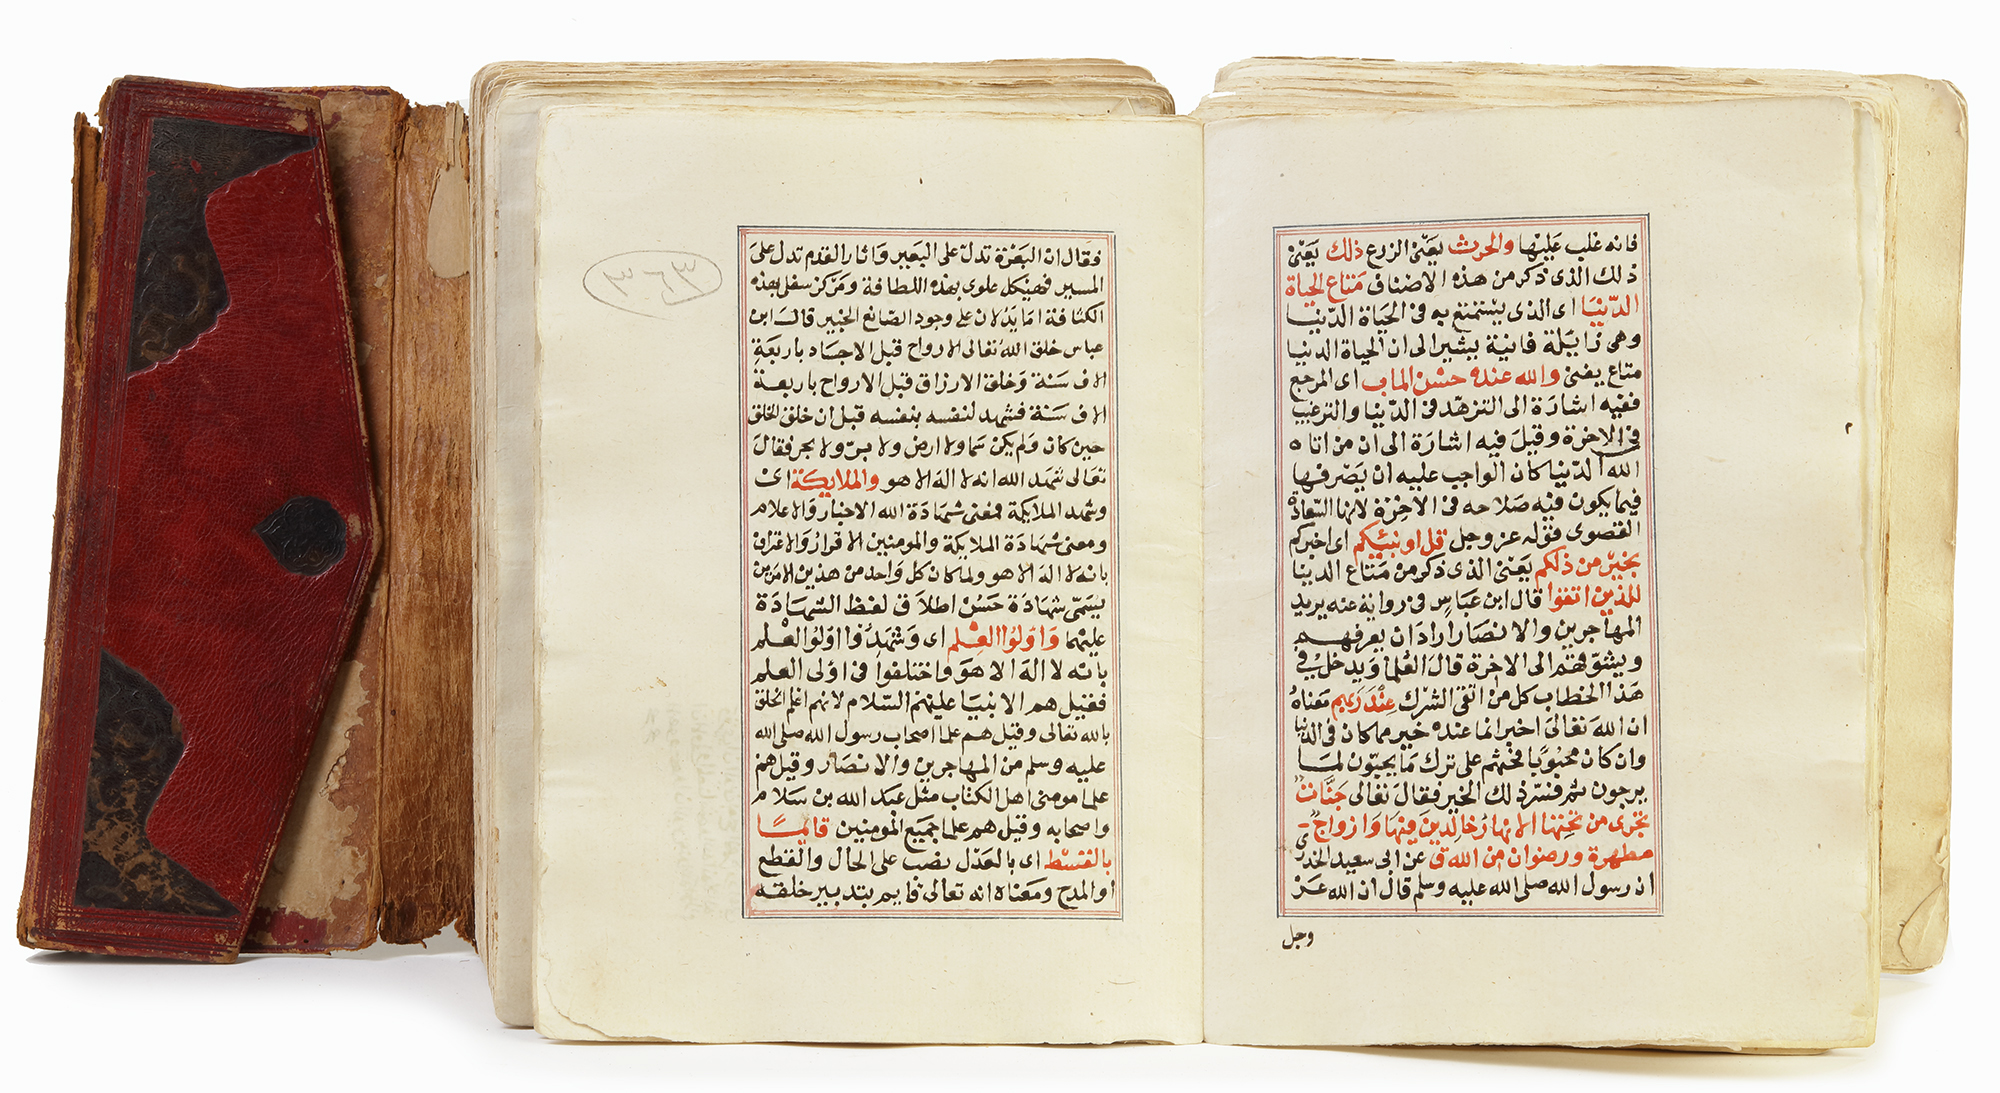 فانه غلب عليها والحرث يعني الزرع ذلك يعني
ذلك الذي ذكر من هذه الاصناف متاع الحياة
الدنيا اي الذي يستمتع به في الحياة الدنيا
وهي زايلة فانية يشير الى ان الحياة الدنيا
متاع يفنى والله عنده حسن الماب اي المرجع
ففيه اشارة الى التزهد في الدنيا والترغيب
في الاخرة وقيل فيه اشارة الى ان من اتاه
الله الدنيا كان الواجب عليه ان يصرفها
فيما يكون فيه صلاحه في الاخرة لانها السعادة
القصوى قوله عز وجل قل اونبئكم اي اخبركم
بخير من ذلكم يعني الذي ذكر من متاع الدنيا
للذين اتقوا قال ابن عباس في رواية عنه يريد
المهاجرين والانصار اراد ان يعرفهم
ويشوقهم الى الاخرة قال العلما ويدخل في
هذا الخطاب كل من اتقى الشرك عند ربهم معناه
ان الله تعالى اخبر انما عنده خير مما كان في الدنيا
وان كان محبوبا فحثهم على ترك ما يحبون لما
يرجون ثم فسر ذلك الخير فقال تعالى جنات
تجري من تحتها الانهار خالدين فيها وازواج
مطهرة ورضوان من الله ق عن ابي سعيد الخدري
ان رسول الله صلى الله عليه وسلم قال ان الله عز
وجل
فقال ان البعرة تدل على البعير واثار القدم تدل على
المسير فهيكل علوي بهذه اللطافة ومركز سفلي بهذه
الكثافة اما يدلان على وجود الصانع الخبير قال ابن
عباس خلق الله تعالى الارواح قبل الاجساد باربعة
الاف سنة وخلق الارزاق قبل الارواح باربعة
الاف سنة فشهد لنفسه بنفسه قبل ان خلق الخلق
حين كان ولم يكن سما ولا ارض ولا بر ولا بحر فقال
تعالى شهد الله انه لا اله الا هو والملايكة اي
وشهد الملايكة فمعنى شهادة الله الاخبار والاعلام
ومعنى شهادة الملايكة والمومنين الاقرار والاعتراف
بانه لا اله الا هو ولما كان كل واحد من هذين الامرين
يسمى شهادة حسن اطلاق لفظ الشهادة
عليهما واولوا العلم اي وشهد اولوا العلم
بانه لا اله الا هو واختلفوا في اولى العلم
فقيل هم الانبيا عليهم السلام لانهم اعلم الخلق
بالله تعالى وقيل هم علما اصحاب رسول الله صلى الله
عليه وسلم من المهاجرين والانصار وقيل هم
علما مومنى اهل الكتاب مثل عبد الله بن سلام
واصحابه وقيل هم علما جميع المومنين قايما
بالقسط اي بالعدل نصب على الحال والقطع
او المدح ومعناه انه تعالى قايم بتدبير خلقه
٣٦٣